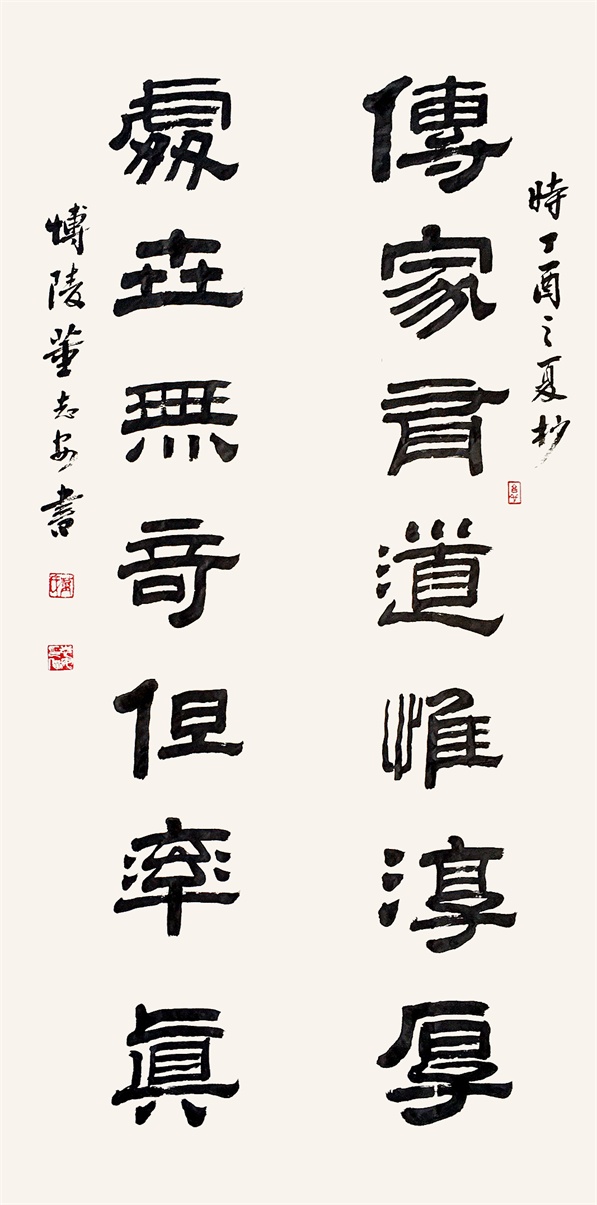 時丁酉之夏杪
傳家有道惟淳厚
處世無奇但率眞
博陵董志安書